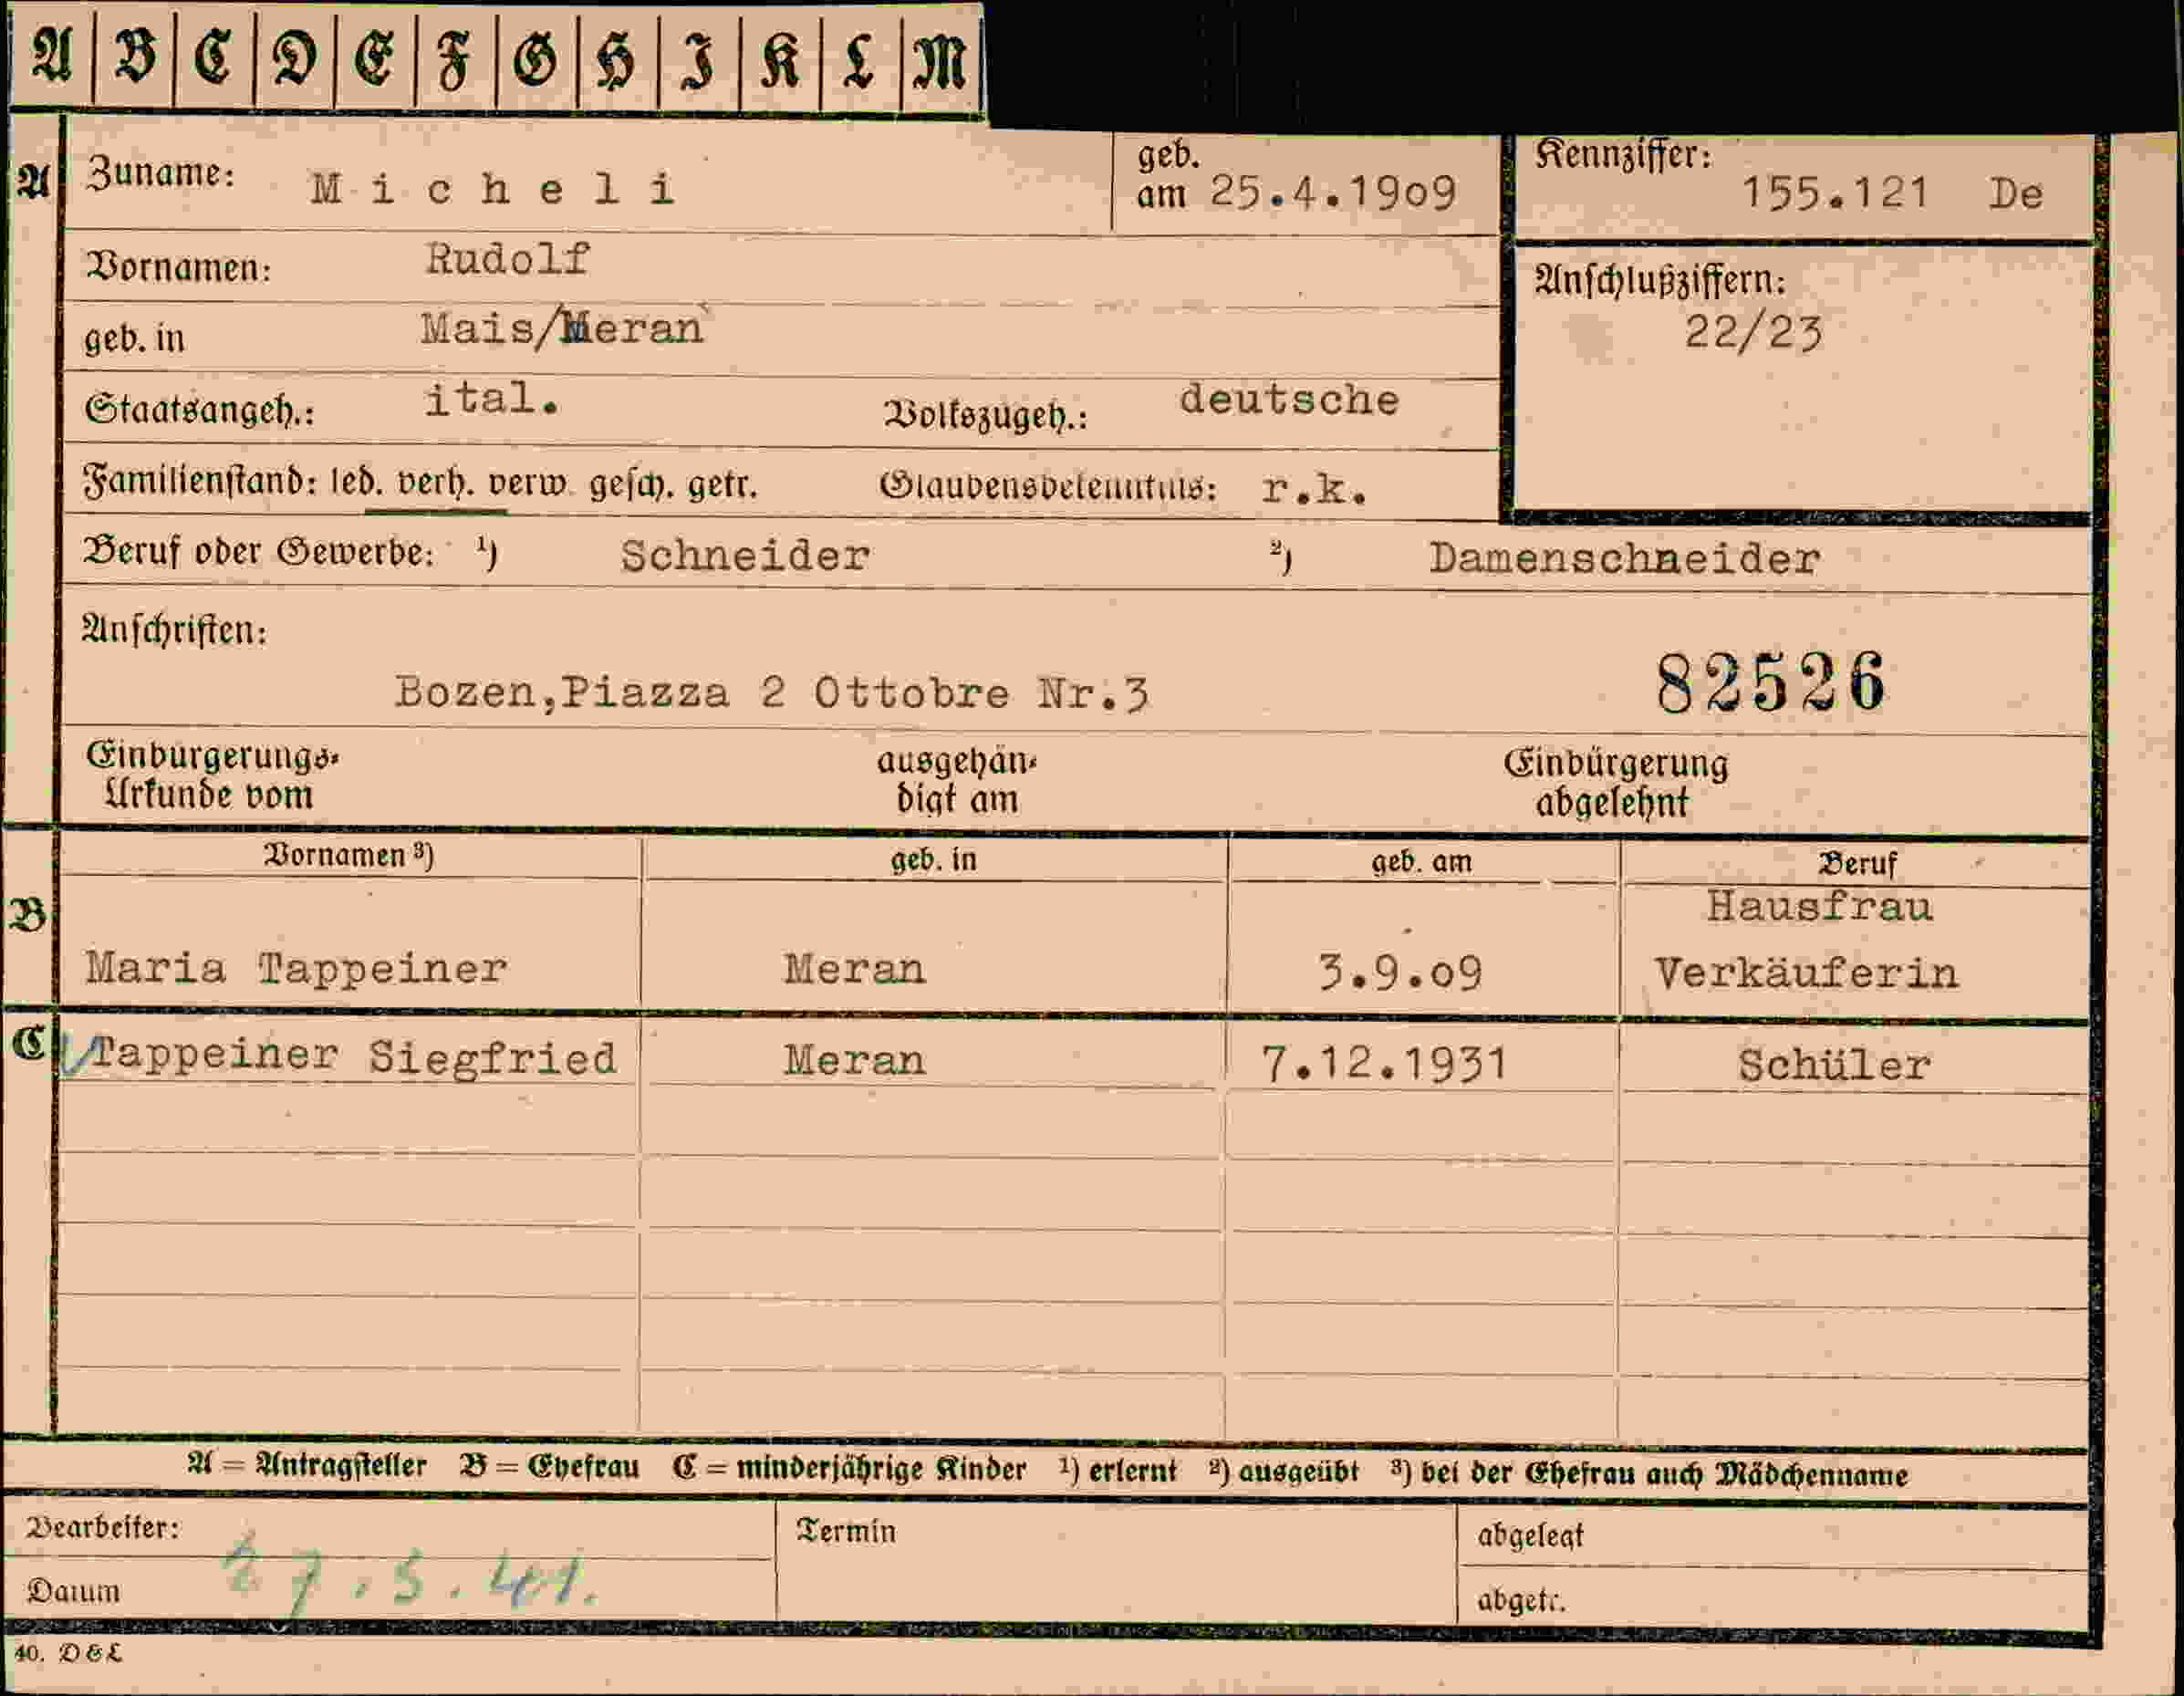 A B C D E F G H I K L M
A Zuname: Micheli geb. am 25.4.1909 Kennziffer: 155.121 De
Vornamen: Rudolf Anschlußziffern:
geb. in Mais/Meran 22/23
Staatsangeh.: ital. Volkszugeh.: deutsche
Familienstand: led. verh. verw. gesch. getr. Glaubensbekenntnis: r.k.
Beruf oder Gewerbe: ¹) Schneider ²) Damenschneider
Anschriften:
Bozen,Piazza 2 Ottobre Nr.3 82526
Einbürgerungs- ausgehän- Einbürgerung
Urkunde vom digt am abgelehnt
Vornamen ³) geb. in geb. am Beruf
B Hausfrau
Maria Tappeiner Meran 3.9.09 Verkäuferin
C Tappeiner Siegfried Meran 7.12.1931 Schüler
A = Antragsteller B = Ehefrau C = minderjährige Kinder ¹) erlernt ²) ausgeübt ³) bei der Ehefrau auch Mädchenname
Bearbeiter: Termin abgelegt
Datum 27.3.41. abgetr.
40. D&L